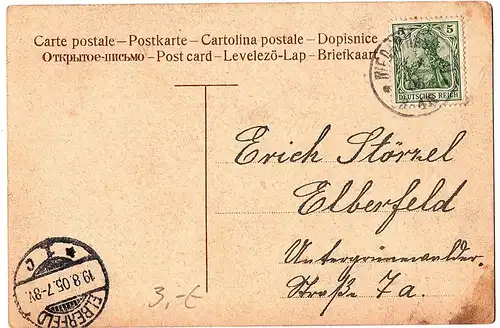 Carte postale – Postkarte – Cartolina postale – Dopisnice
Открытое-письмо – Post card – Levelező-Lap – Briefkaart
5 5
DEUTSCHES REICH
Erich Störzel
Elberfeld
Untergrünewalder-
Straße 7a.
ELBERFELD
19.8.05.7-8V.
1
c
3,-€